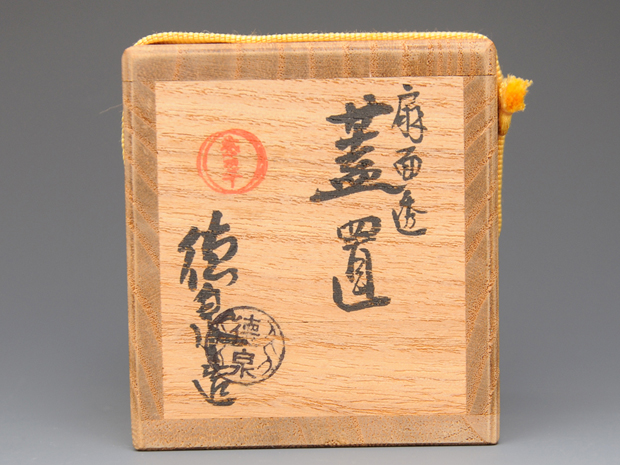 扇面透
蓋置
徳泉造
徳泉